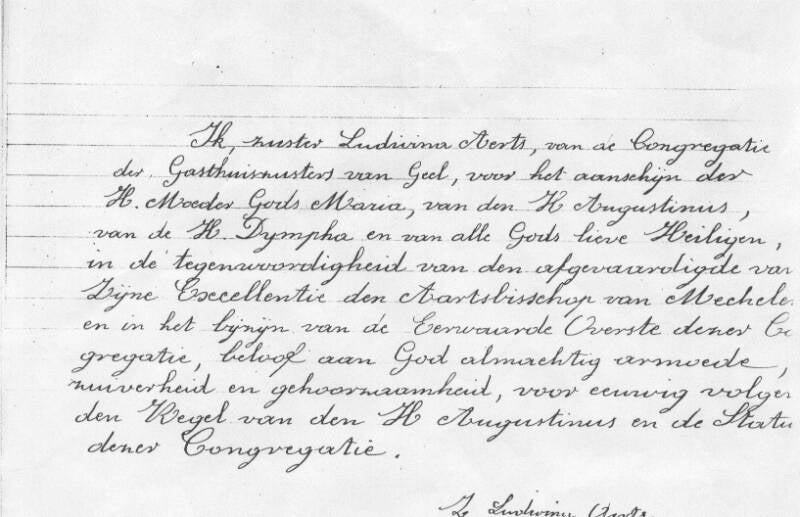 Ik, zuster Ludivina Aerts, van de Congregatie
der Gasthuiszusters van Geel, voor het aanschijn der
H. Moeder Gods Maria, van den H Augustinus,
van de H. Dympha en van alle Gods lieve Heiligen,
in de tegenwoordigheid van den afgevaardigde van
Zijne Excellentie den Aartsbisschop van Mechele
en in het bijzijn van de Eerwaarde Overste dezer Co
gregatie, beloof aan God almachtig armoede,
zuiverheid en gehoorzaamheid, voor eeuwig volgen
den Regel van den H Augustinus en de Statu
dezer Congregatie.
Z Ludivina Aerts